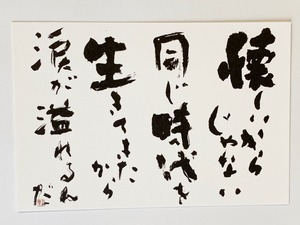 懐しいから
じゃない
同じ時代を
生きてきた
から
涙が溢れるね